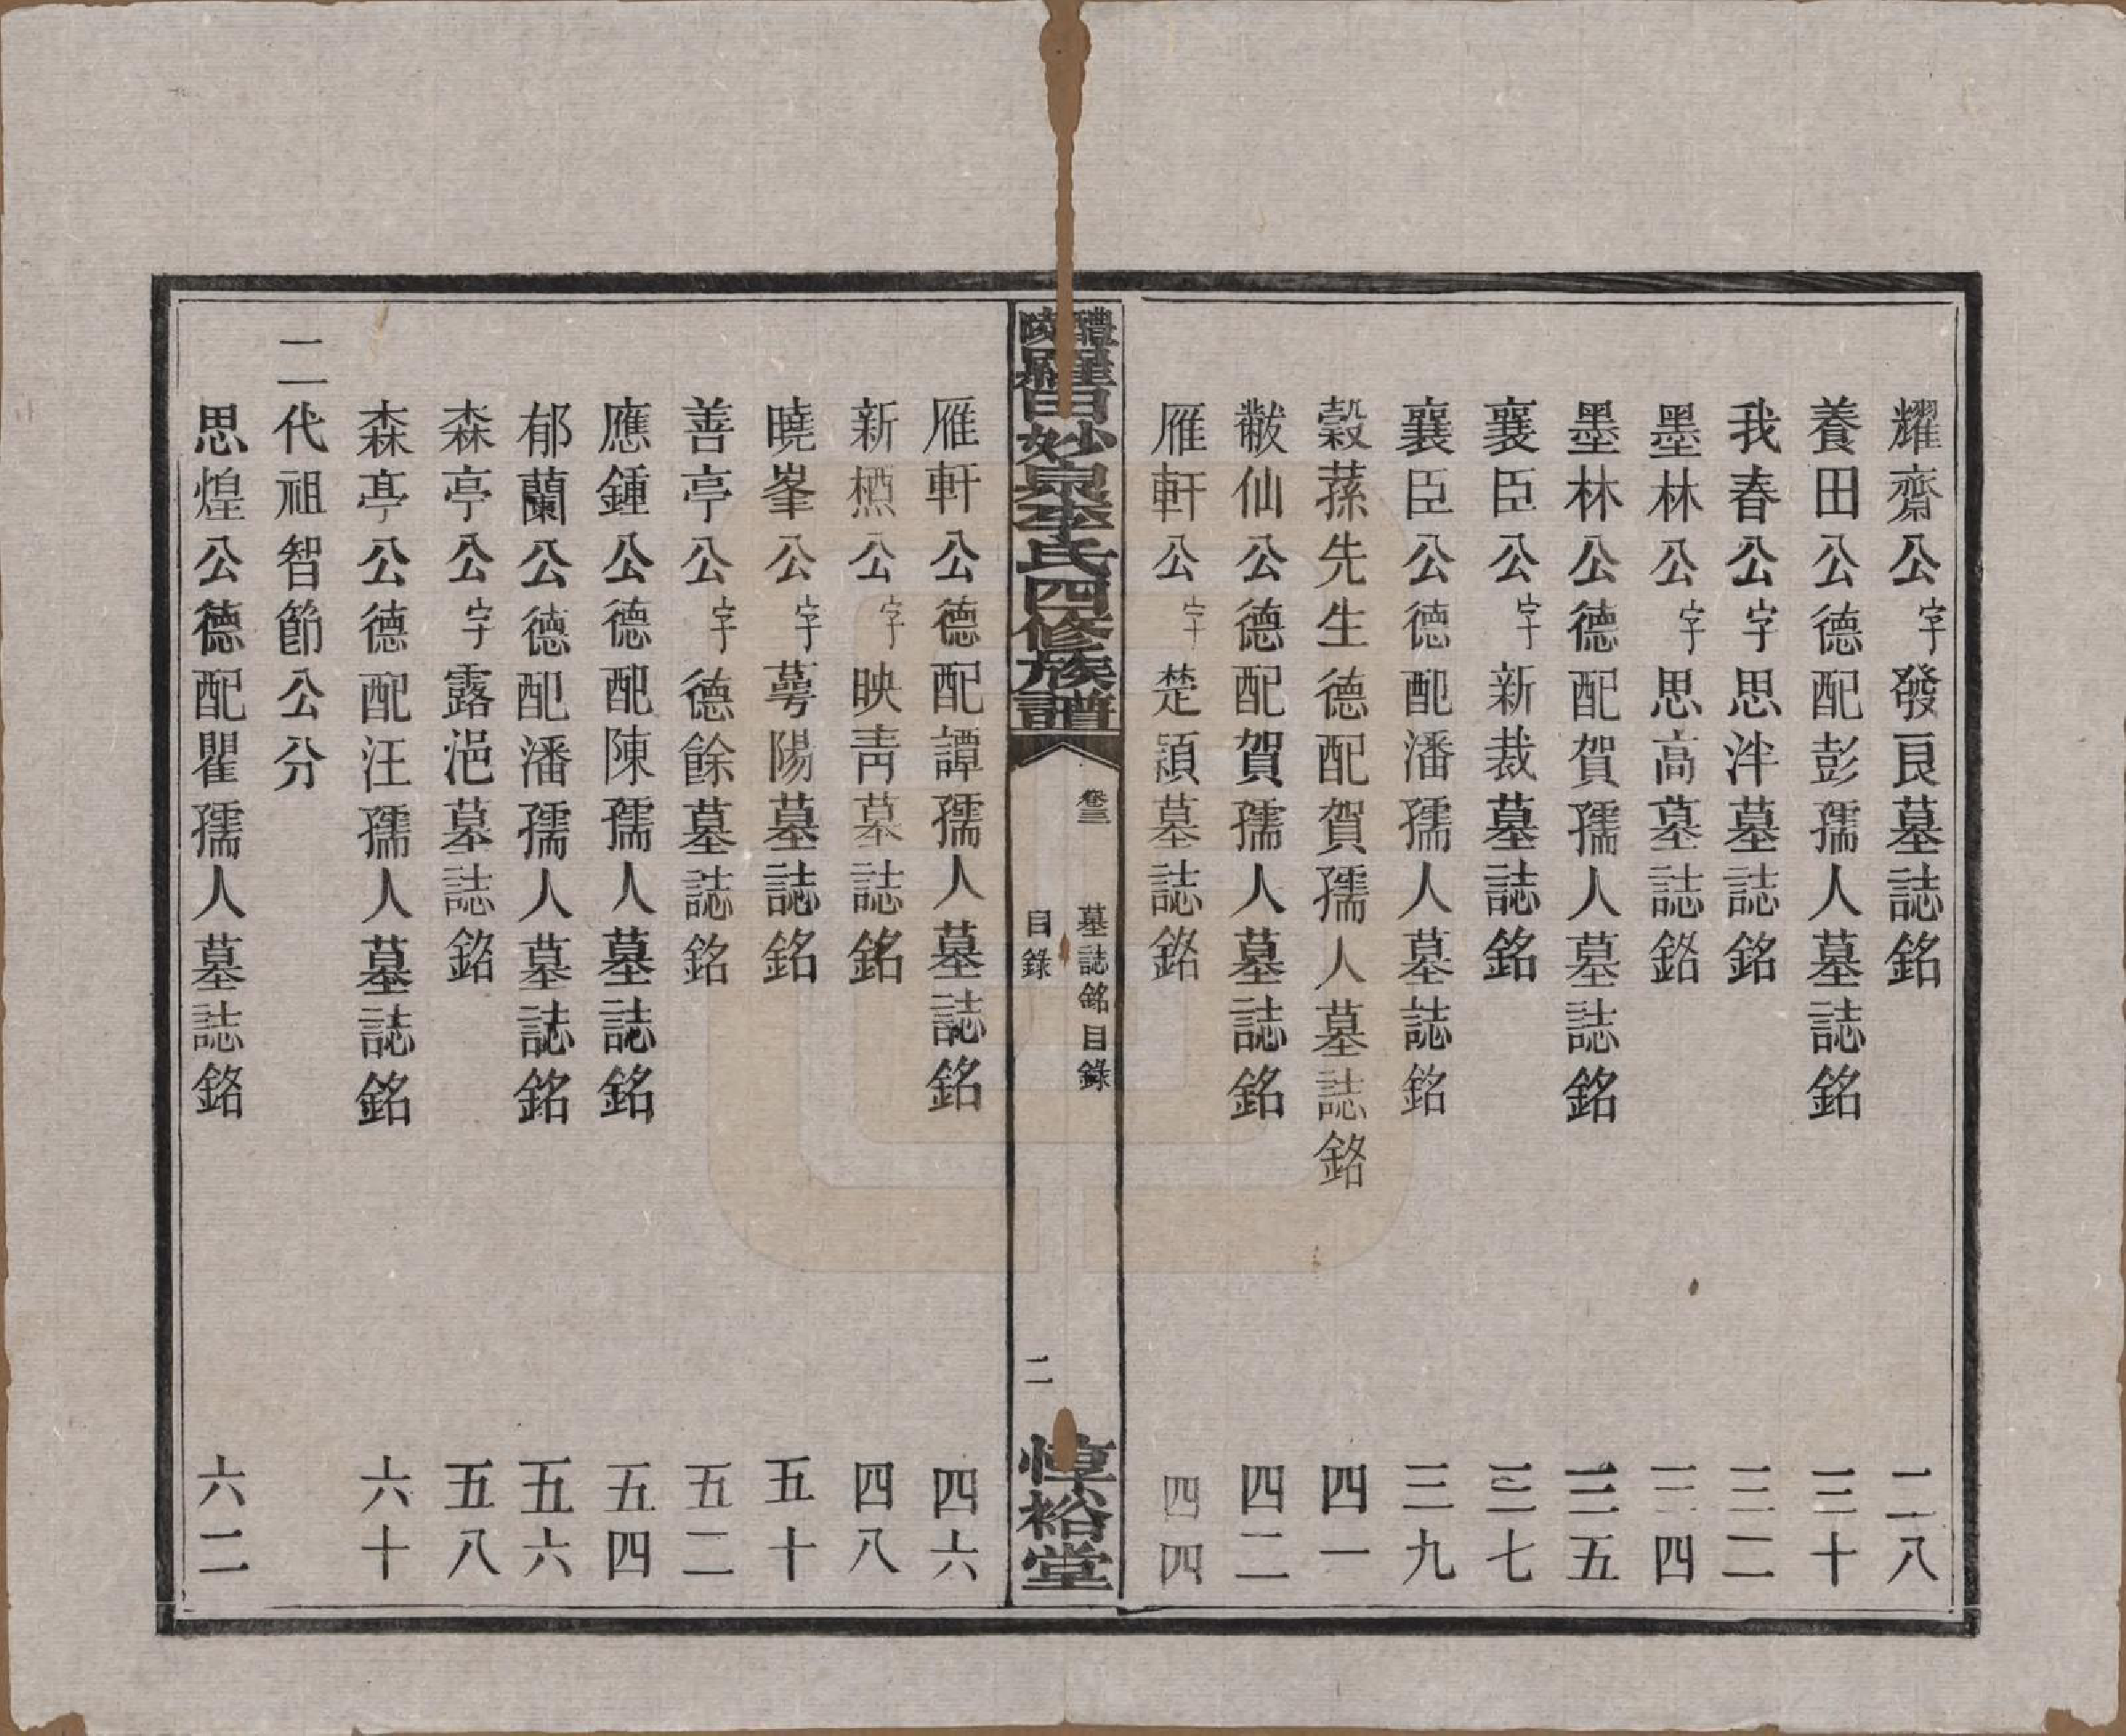 耀齋公字發良墓誌銘 二八
養田公德配彭孺人墓誌銘 三十
我春公字思泮墓誌銘 三二
墨林公字思高墓誌銘 三四
墨林公德配賀孺人墓誌銘 三五
襄臣公字新裁墓誌銘 三七
襄臣公德配潘孺人墓誌銘 三九
穀蓀先生德配賀孺人墓誌銘 四一
黻仙公德配賀孺人墓誌銘 四二
雁軒公字楚頴墓誌銘 四四
醴陵羅田妙泉李氏四修族譜
卷三 墓誌銘目錄
目錄 二
惇裕堂
雁軒公德配譚孺人墓誌銘 四六
新槱公字映靑墓誌銘 四八
曉峯公字蕚陽墓誌銘 五十
善亭公字德餘墓誌銘 五二
應鍾公德配陳孺人墓誌銘 五四
郁蘭公德配潘孺人墓誌銘 五六
森亭公字露浥墓誌銘 五八
森亭公德配汪孺人墓誌銘 六十
二代祖智節公分
思煌公德配瞿孺人墓誌銘 六二